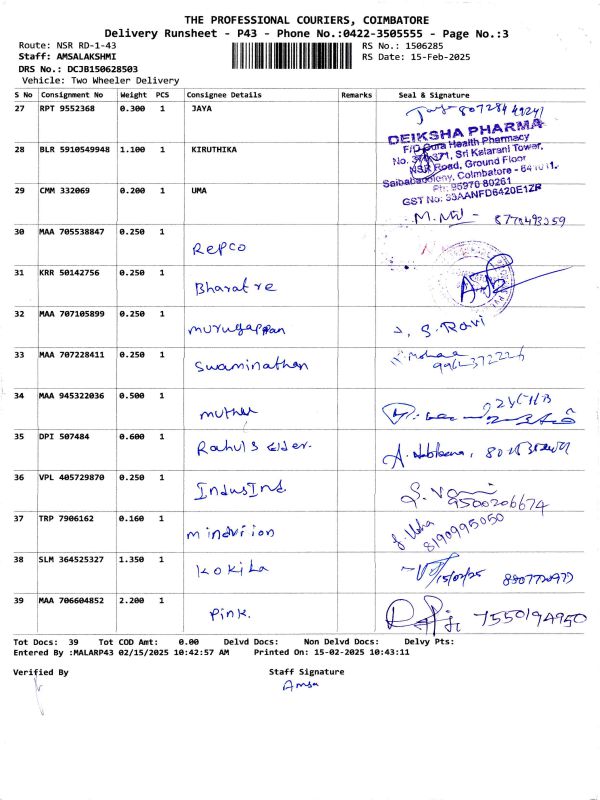 THE PROFESSIONAL COURIERS, COIMBATORE
Delivery Runsheet - P43 - Phone No.:0422-3505555 - Page No.:3
Route: NSR RD-1-43 RS No.: 1506285
Staff: AMSALAKSHMI RS Date: 15-Feb-2025
DRS No.: DCJB150628503
Vehicle: Two Wheeler Delivery
S No Consignment No Weight PCS Consignee Details Remarks Seal & Signature
27 RPT 9552368 0.300 1 JAYA
DEIKSHA PHARMA
28 BLR 5910549948 1.100 1 KIRUTHIKA
Health Pharmacy
Sri Kalarani Tower,
NSR Road, Ground Floor
Coimbatore - 641011.
29 CMM 332069 0.200 1 UMA
Ph: 95970 80261
GST No: 33AANFD6420E1ZR
30 MAA 705538847 0.250 1 Repco
31 KRR 50142756 0.250 1 Bharat re
32 MAA 707105899 0.250 1 Murugappan S. Ravi
33 MAA 707228411 0.250 1 Swaminathan
34 MAA 945322036 0.500 1
35 DPI 507484 0.600 1 Rahul's elder.
36 VPL 405729870 0.250 1 IndusInd 9500206674
37 TRP 7906162 0.160 1 8190995050
38 SLM 364525327 1.350 1 Kokila 15/02/25
39 MAA 706604852 2.200 1 Pink. 7550194950
Tot Docs: 39 Tot COD Amt: 0.00 Delvd Docs: Non Delvd Docs: Delvy Pts:
Entered By :MALARP43 02/15/2025 10:42:57 AM Printed On: 15-02-2025 10:43:11
Verified By Staff Signature
Amsa